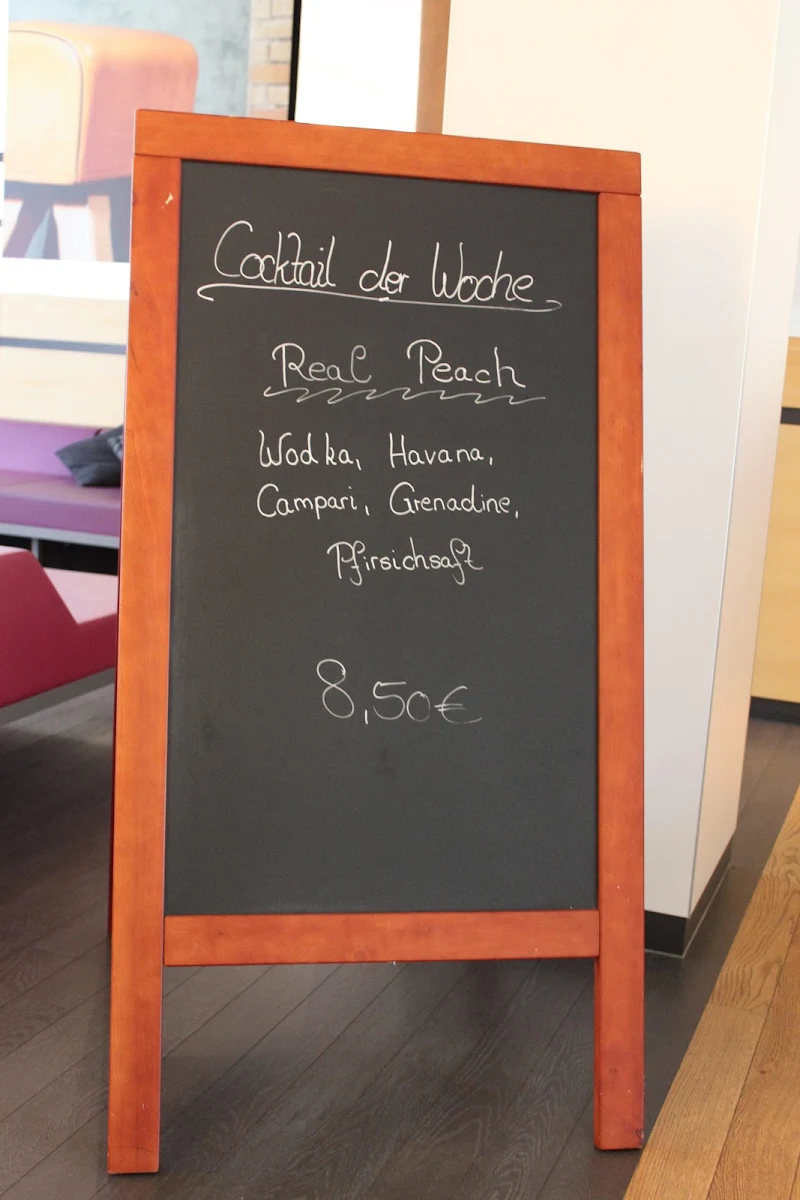 Cocktail der Woche
Real Peach
Wodka, Havana,
Campari, Grenadine,
Pfirsichsaft
8,50€